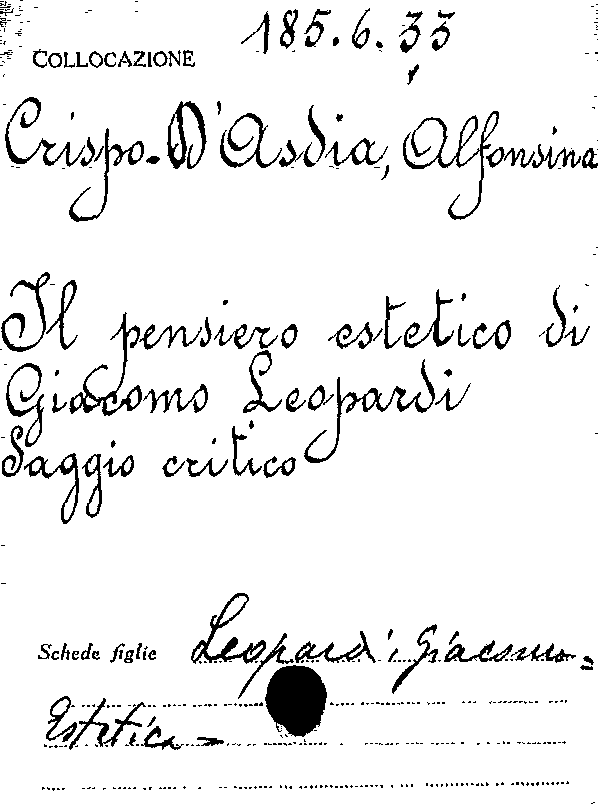 COLLOCAZIONE 185.6.33
Crispo-D'Asdia, Alfonsina
Il pensiero estetico di
Giacomo Leopardi
Saggio critico
Schede figlie Leopardi, Giacomo=
Estetica=